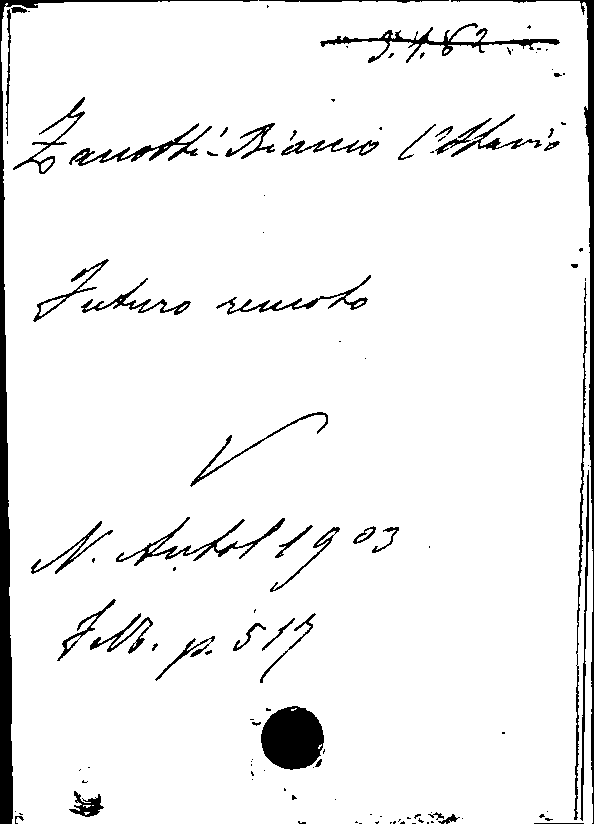 3.4.82
Zanotti-Bianco Ottavio
Futuro remoto
N. Antol 1903
Febb. p. 517